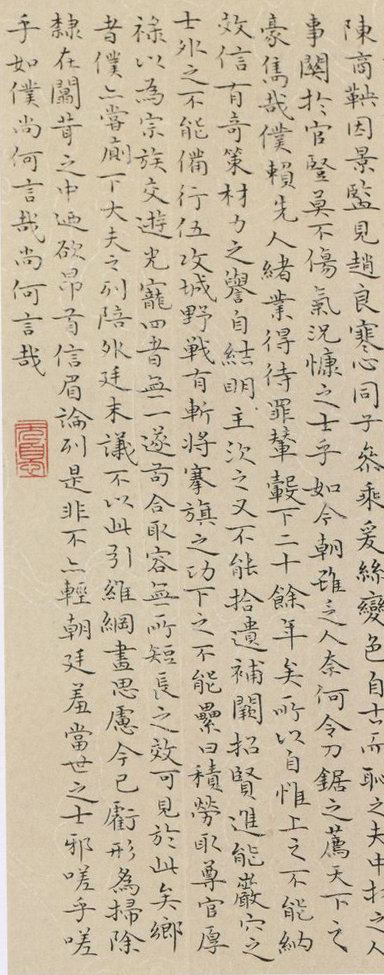 陳商鞅因景監見趙良寒心同子參乘爰絲變色自古而恥之夫中材之人
事關於官豎莫不傷氣況慷之士乎如今朝雖乏人奈何令刀鋸之薦天下之
豪雋哉僕賴先人緒業得待罪輦轂下二十餘年矣所以自惟上之不能納
效信有奇策材力之譽自結明主次之又不能拾遺補闕招賢進能嚴穴之
士外之不能備行伍攻城野戰有斬將搴旗之功下之不能壘日積勞取尊官厚
祿以為宗族交遊光寵四者無一遂苟合取容無所短長之效可見於此矣鄉
者僕亦嘗廁下大夫之列陪外廷末議不以此引維綱盡思慮今已虧形為掃除
隸在闒茸之中迺欲昂首信眉論列是非不亦輕朝廷羞當世之士邪嗟乎嗟
乎如僕尚何言哉尚何言哉